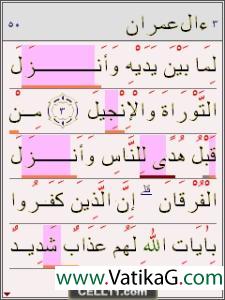 ٣ ءال عمران ٥٠
لِّمَا بَيْنَ يَدَيْهِ وَأَنـــزَلَ
التَّوْرَاةَ وَالْإِنْجِيلَ ٣ مِــنْ
قَبْلُ هُدًى لِّلنَّاسِ وَأَنــزَلَ
الْفُرْقَانَ قلے إِنَّ الَّذِينَ كَفَرُوا
بِآيَاتِ اللَّهِ لَهُمْ عَذَابٌ شَدِيدٌ
www.VatikaG.com
CELL11.com